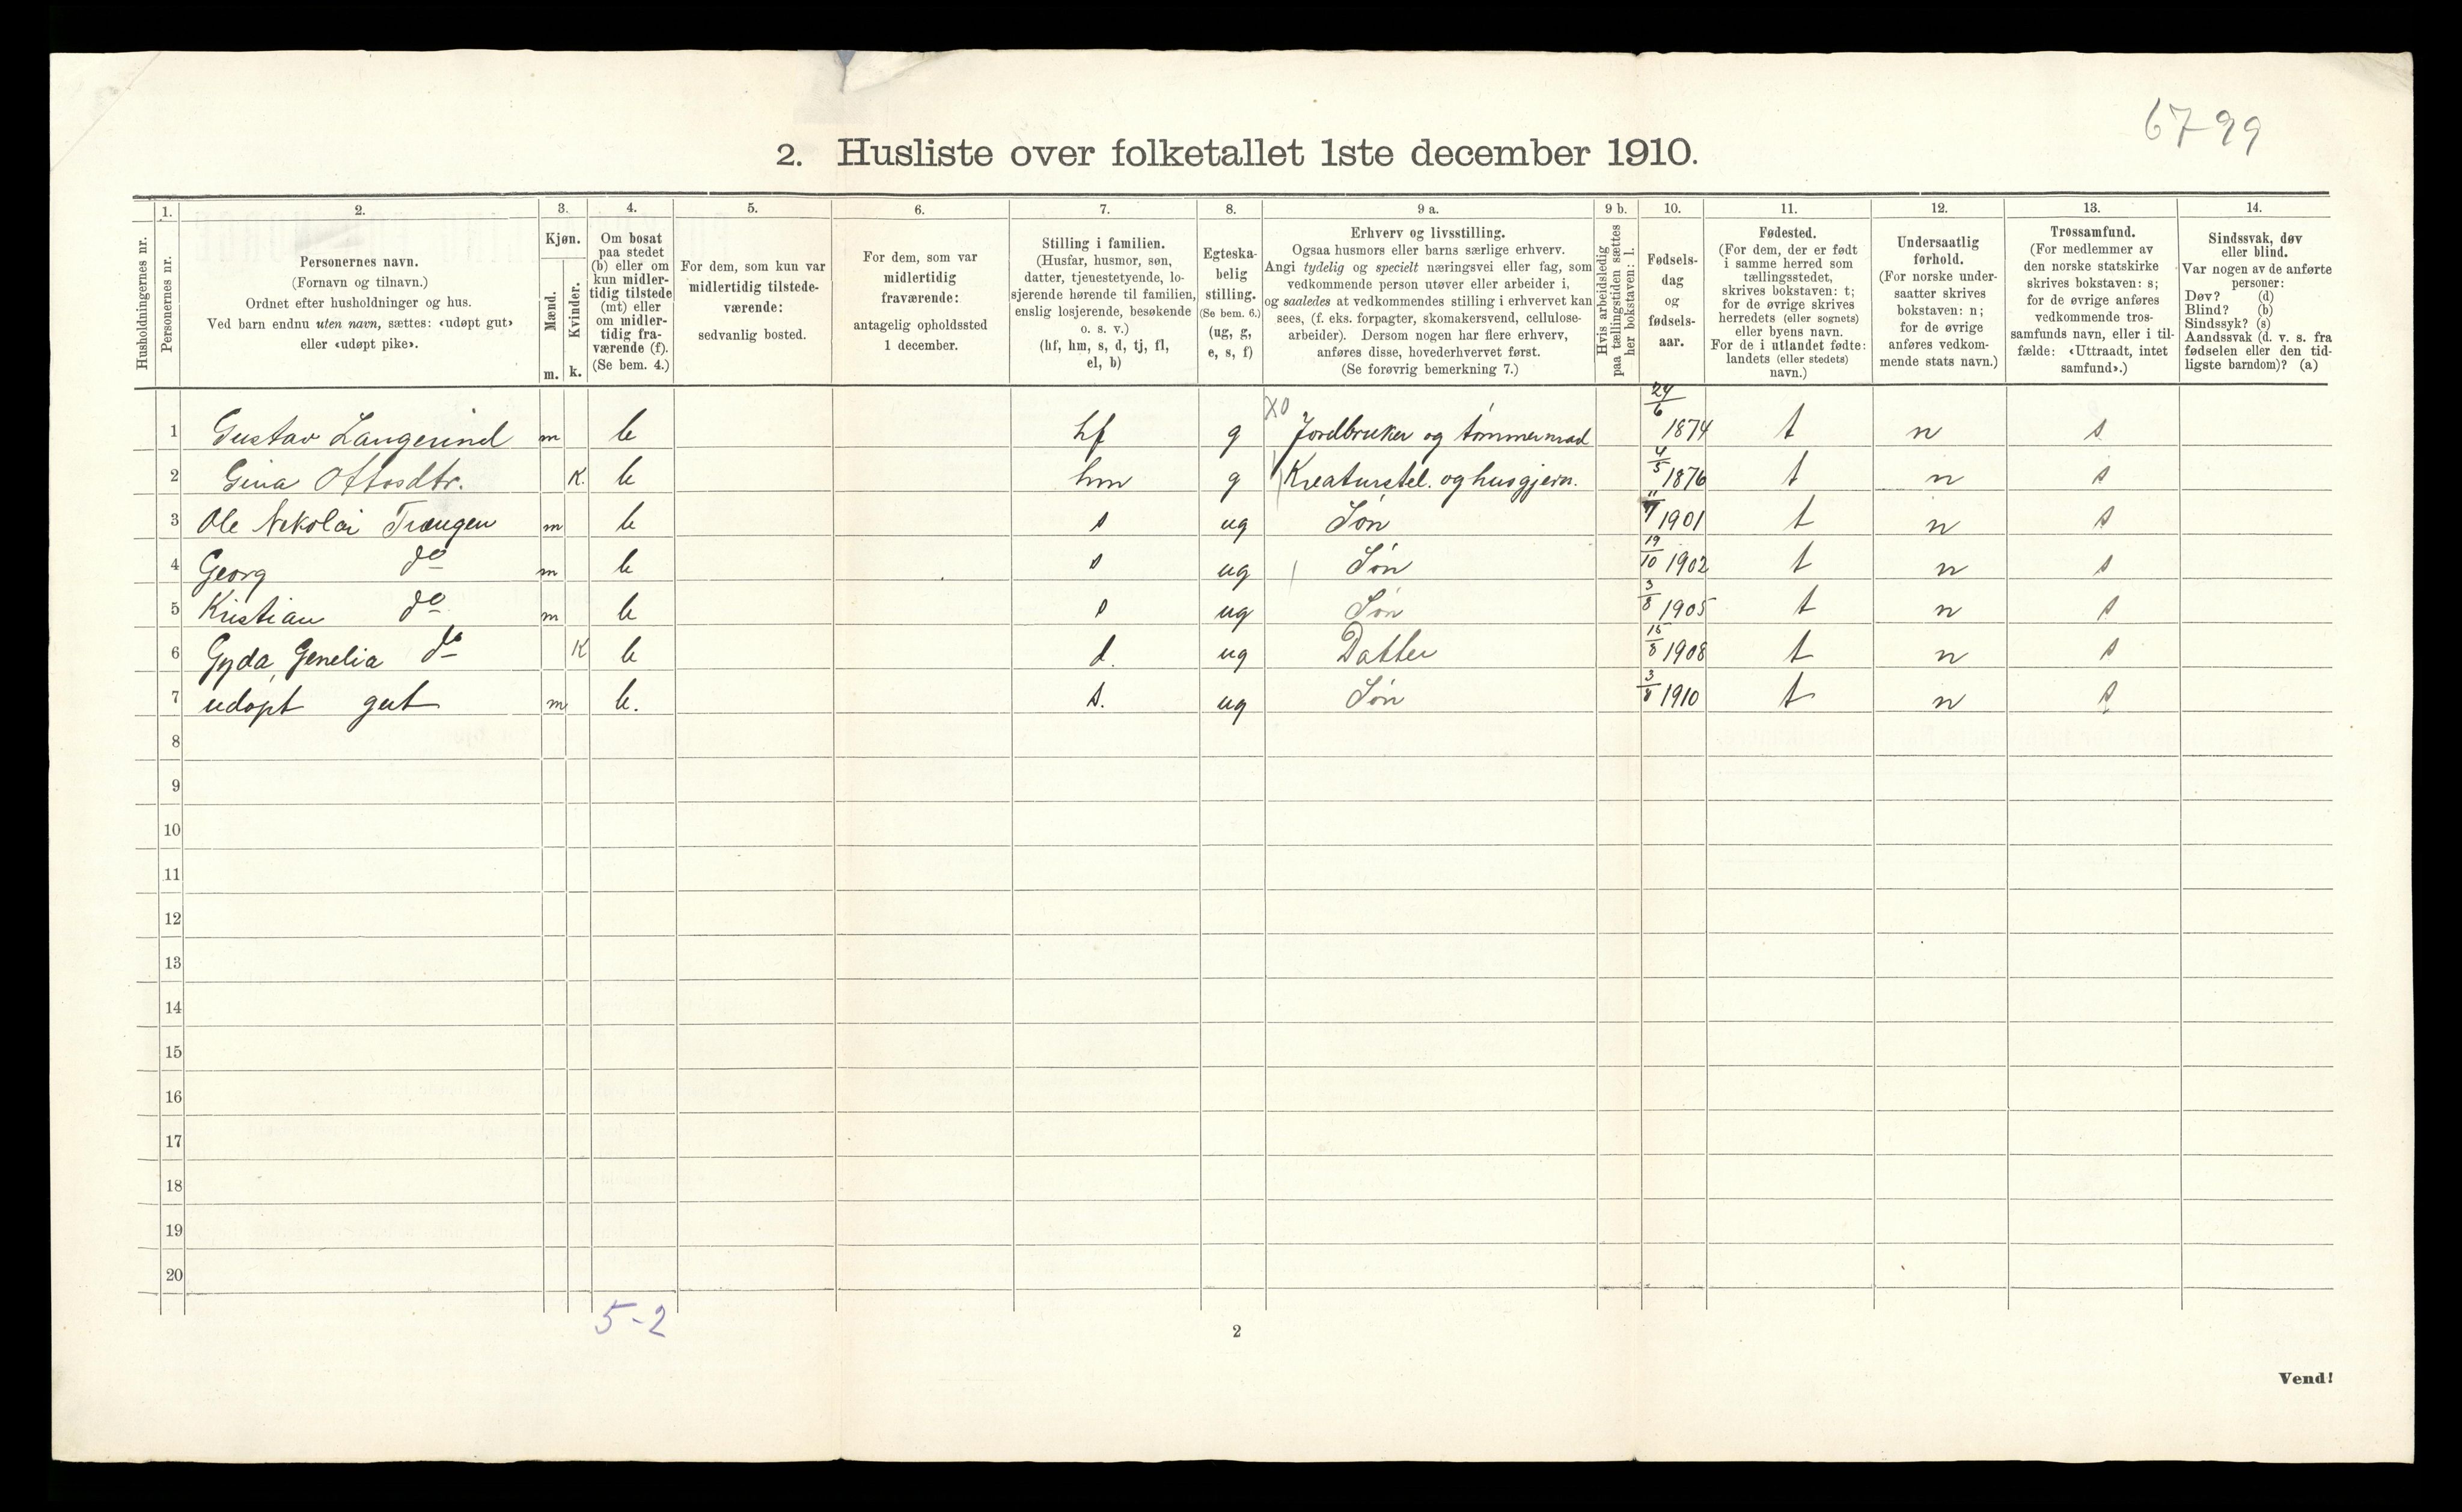 6799
2. Husliste over folketallet 1ste december 1910.
Husholdningernes nr.
1.
Personernes nr.
2.
Personernes navn.
(Fornavn og tilnavn.)
Ordnet efter husholdninger og hus.
Ved barn endnu uten navn, sættes: «udøpt gut»
eller «udøpt pike».
3.
Kjøn.
Mænd.
Kvinder.
m.
k.
4.
Om bosat
paa stedet
(b) eller om
kun midler-
tidig tilstede
(mt) eller
om midler-
tidig fra-
værende (f).
(Se bem. 4.)
5.
For dem, som kun var
midlertidig tilstede-
værende:
sedvanlig bosted.
6.
For dem, som var
midlertidig
fraværende:
antagelig opholdssted
1 december.
7.
Stilling i familien.
(Husfar, husmor, søn,
datter, tjenestetyende, lo-
sjerende hørende til familien,
enslig losjerende, besøkende
o. s. v.)
(hf, hm, s, d, tj, fl,
el, b)
8.
Egteska-
belig
stilling.
(Se bem. 6.)
(ug, g,
e, s, f)
9 a.
Erhverv og livsstilling.
Ogsaa husmors eller barns særlige erhverv.
Angi tydelig og specielt næringsvei eller fag, som
vedkommende person utøver eller arbeider i,
og saaledes at vedkommendes stilling i erhvervet kan
sees, (f. eks. forpagter, skomakersvend, cellulose-
arbeider). Dersom nogen har flere erhverv,
anføres disse, hovederhvervet først.
(Se forøvrig bemerkning 7.)
9 b.
Hvis arbeidsledig
paa tællingstiden sættes
her bokstaven: l.
10.
Fødsels-
dag
og
fødsels-
aar.
11.
Fødested.
(For dem, der er født
i samme herred som
tællingsstedet,
skrives bokstaven: t;
for de øvrige skrives
herredets (eller sognets)
eller byens navn.
For de i utlandet fødte:
landets (eller stedets)
navn.)
12.
Undersaatlig
forhold.
(For norske under-
saatter skrives
bokstaven: n;
for de øvrige
anføres vedkom-
mende stats navn.)
13.
Trossamfund.
(For medlemmer av
den norske statskirke
skrives bokstaven: s;
for de øvrige anføres
vedkommende tros-
samfunds navn, eller i til-
fælde: «Uttraadt, intet
samfund».)
14.
Sindssvak, døv
eller blind.
Var nogen av de anførte
personer:
Døv? (d)
Blind? (b)
Sindssyk? (s)
Aandssvak (d. v. s. fra
fødselen eller den tid-
ligste barndom)? (a)
1 Gustav Langerind m b hf g X0 Jordbruker og tømmermad 24/6 1874 t n s
2 Gina Ottosdtr. K. b hm g Kreaturstel. og husgjern. 4/5 1876 t n s
3 Ole Nekolai Trængen m b s ug Søn 1901 t n s
4 Georg do m b s ug Søn 19/10 1902 t n s
5 Kristian do m b s ug Søn 3/8 1905 t n s
6 Gyda Genelia do K b d. ug Datter 15/8 1908 t n s
7 udøpt gut m b. s. ug Søn 3/8 1910 t n s
8
9
10
11
12
13
14
15
16
17
18
19
20
5-2
2
Vend!